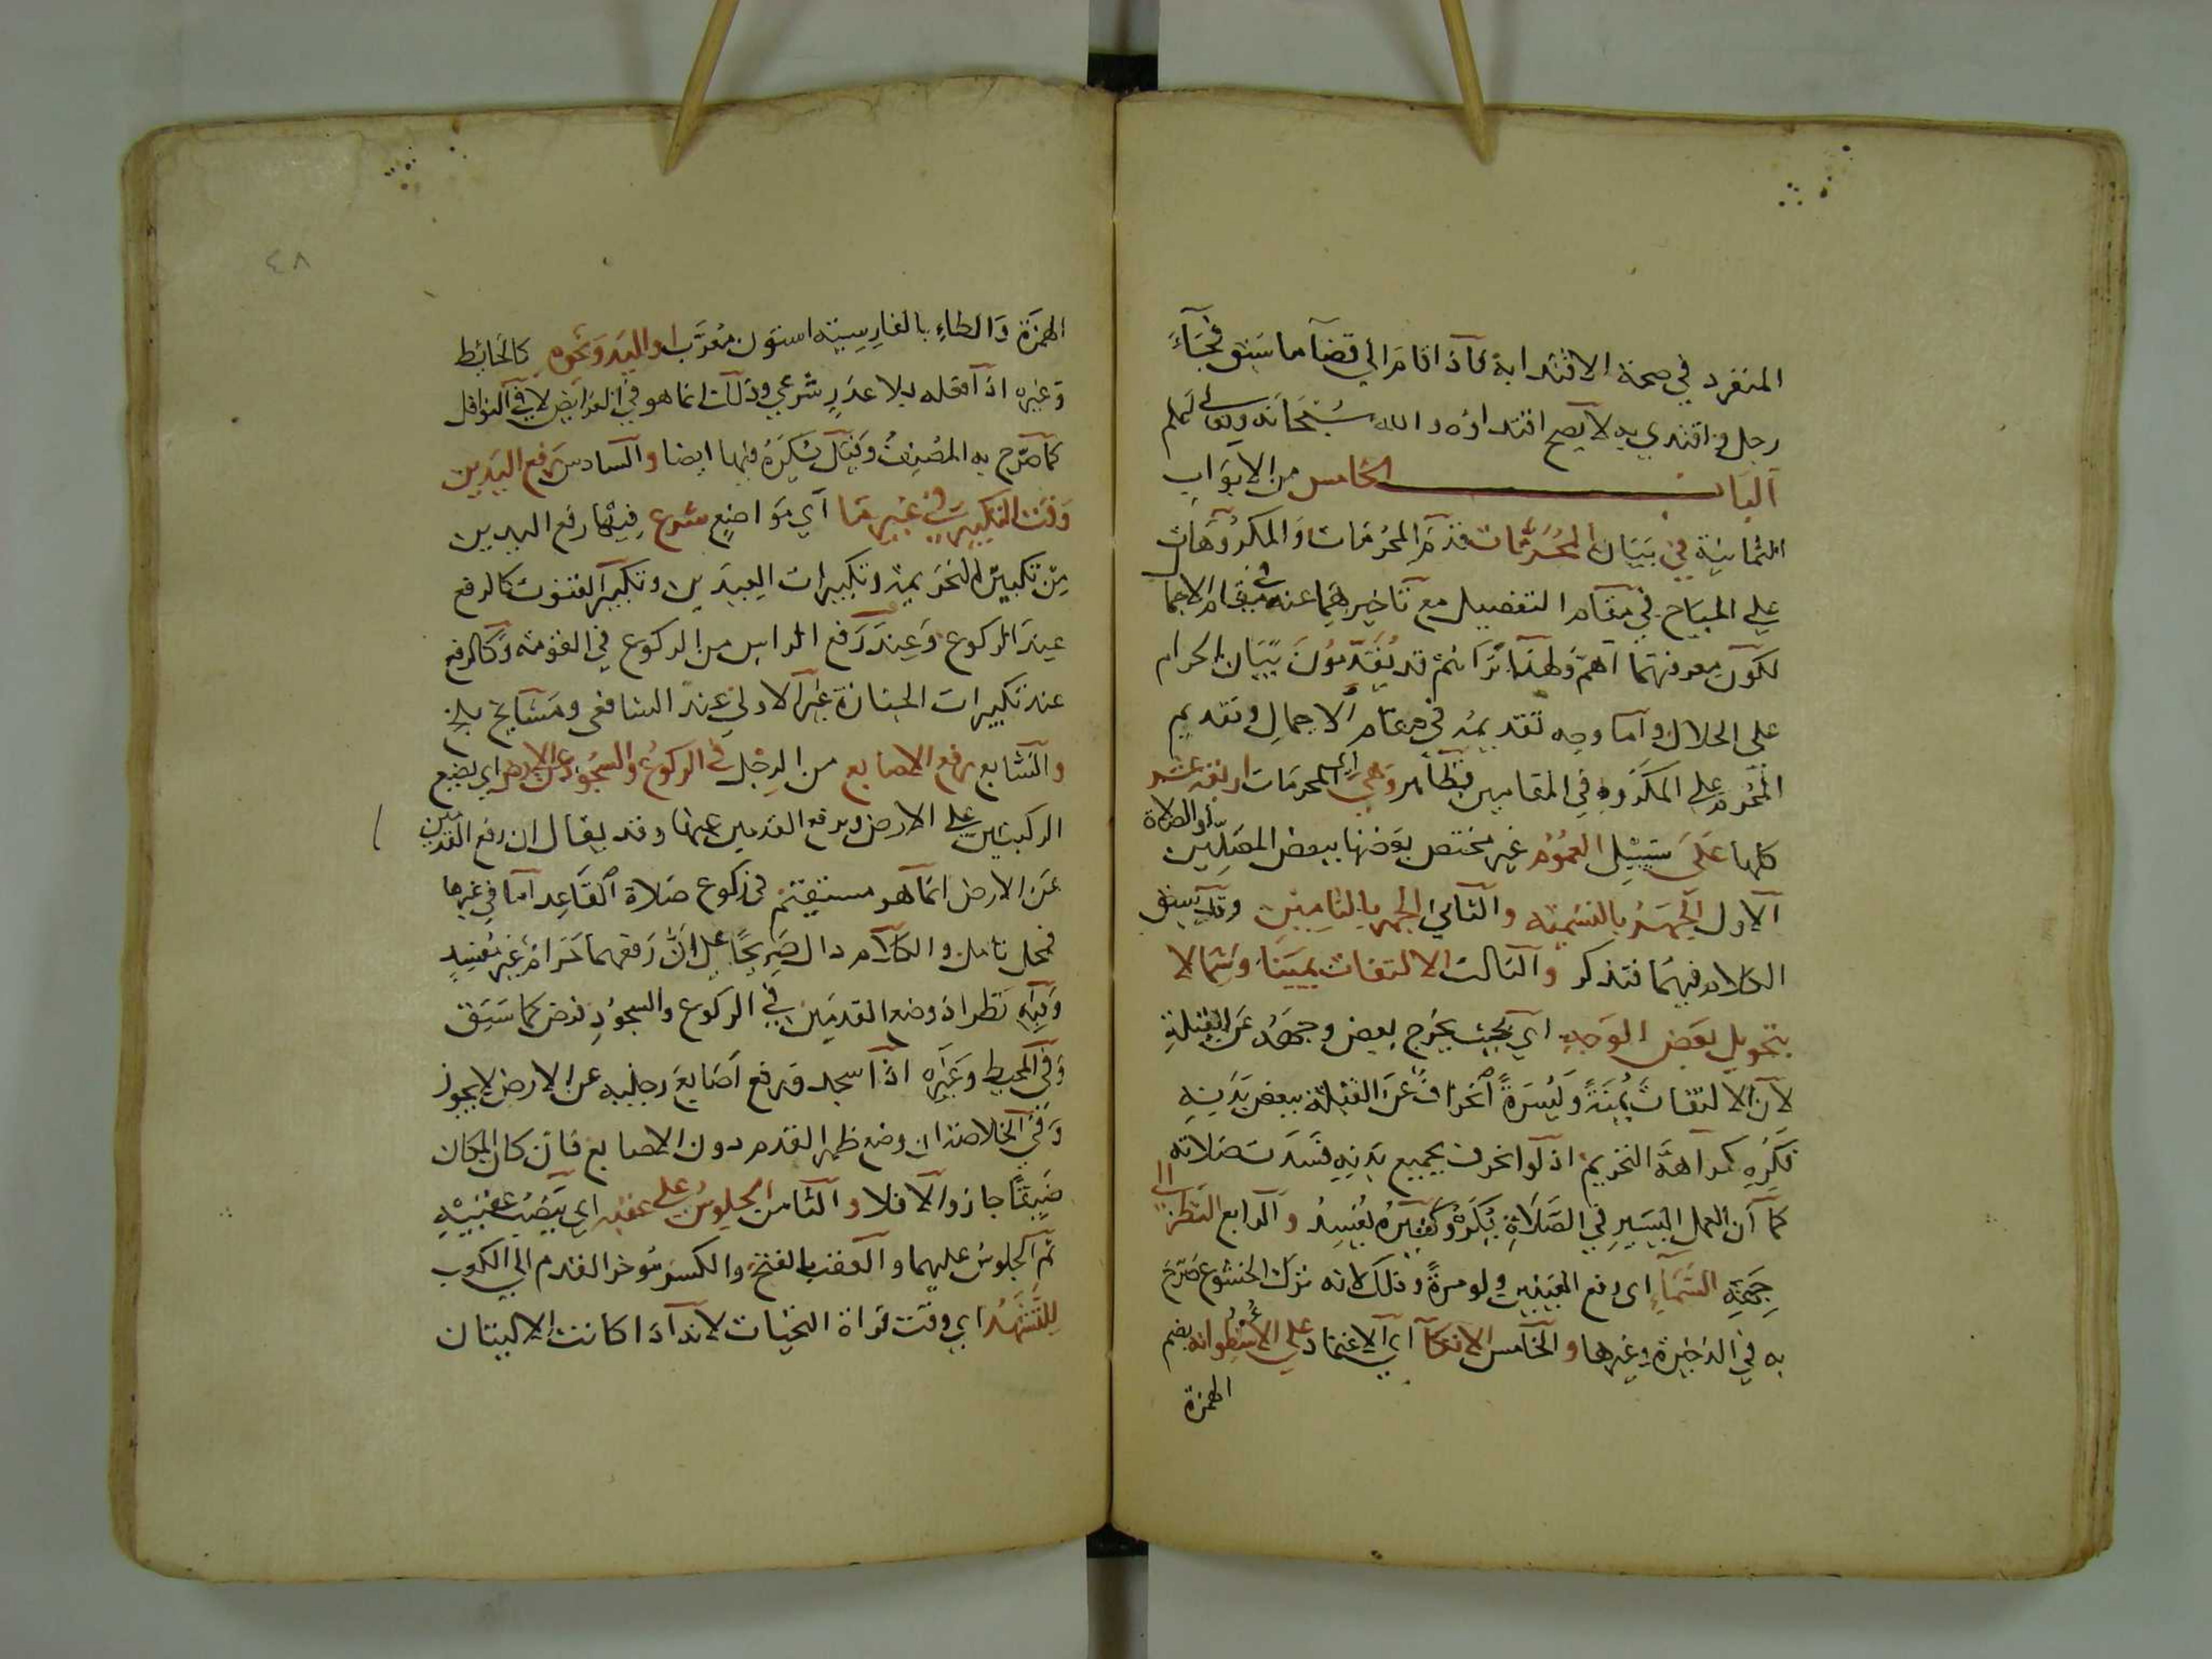 المنفرد في صحة الاقتدا به فاذا قام الي قضآ ما سبق فجآء
رجل واقتدي به لا يصح اقتداؤه والله سبحانه وتعالى اعلم
الباب الخامس من الابواب
الثمانية في بيان المحرمات قدم المحرمات والمكروهات
علي المباح في مقام التفصيل مع تاخيرهما عنه في مقام الاجما
لكون معرفتهما اهم ولهذا تراهم قد يقدمون بيان الحرام
علي الحلال واما وجه تقديمه في مقام الاجمال وتقديم
المحرم علي المكروه في المقامين فظاهر وهي اي المحرمات اربعة عشر
كلها علي سبيل العموم غير مختص بعضها ببعض المصلين او الصلاة
الاول الجهر بالتسمية والثاني الجهر بالتامين وقد سبق
الكلام فيهما فتذكر والثالث الالتفات يمينا وشمالا
بتحويل بعض الوجه اي بحيث يخرج بعض وجهه عن القبلة
لان الالتفات يمنة ويسرة انحراف عن القبلة ببعض بدنه
فكره كراهة التحريم اذ لو انحرف بجميع بدنه فسدت صلاته
كما ان العمل اليسير في الصلاة يكره وكثيره يفسد والرابع النظر الى
جهة السمآء اى رفع العينين ولو مرة وذلك لانه ترك الخشوع صرح
به في الذخيرة وغيرها والخامس الاتكآ اي الاعتماد علي الاسطوانة بضم
الهمزة
٤٨
الهمزة والطاء بالفارسية استون معرب او اليد ونحوه كالحايط
وغيره اذا فعله بلا عذر شرعي وذلك انما هو في الفرايض لا في النوافل
كما صرح به المصنف وقيل يكره فيها ايضا والسادس رفع اليدين
وقت التكبير في غير ما اي مواضع شرع فيها رفع اليدين
من تكبير التحريمة وتكبيرات العيدين وتكبير القنوت كالرفع
عند الركوع وعند رفع الراس من الركوع في القومة وكالرفع
عند تكبيرات الجنازة غير الاولي عند الشافعي ومشايخ بلخ
والسابع رفع الاصابع من الرجل في الركوع والسجود عن الارض اي يضع
الركبتين علي الارض ويرفع القدمين عنها وقد يقال ان رفع القدمين
عن الارض انما هو مستقيم في ركوع صلاة القاعد اما في غيرها
فمحل تامل والكلام دال صريحا علي ان رفعهما حرام غير مفسد
وفيه نظر اذ وضع القدمين في الركوع والسجود فرض كما سبق
وفي المحيط وغيره اذا سجد ورفع اصابع رجليه عن الارض لا يجوز
وفي الخلاصة ان وضع ظهر القدم دون الاصابع فان كان المكان
ضيقا جاز والا فلا والثامن الجلوس علي عقبيه اي ينصب عقبيه
ثم الجلوس عليهما والعقب بالفتح والكسر موخر القدم الي الكعب
للتشهد اي وقت قراة التحيات لانه اذا كانت الاليتان